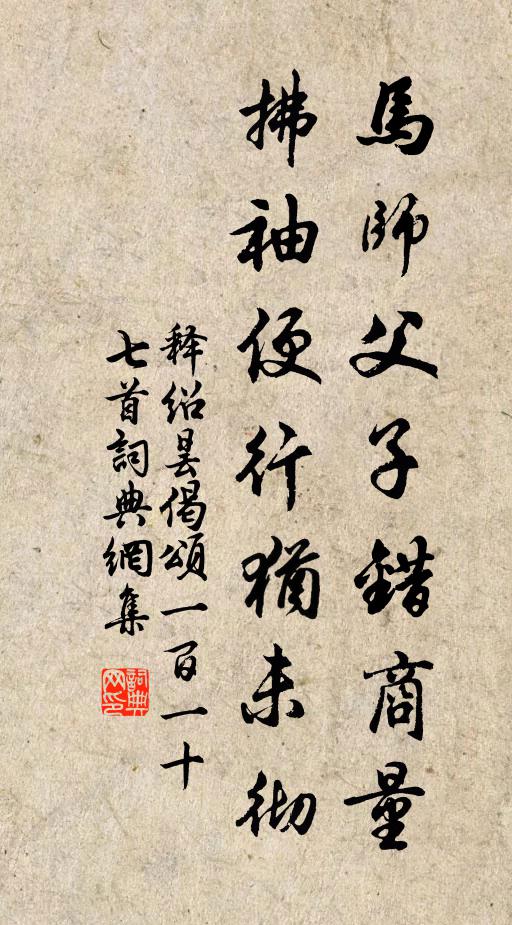 馬師父子錯商量
拂袖便行猶未彻
释紹昙偈頌一百一十
七首詞典網集
詞典网印